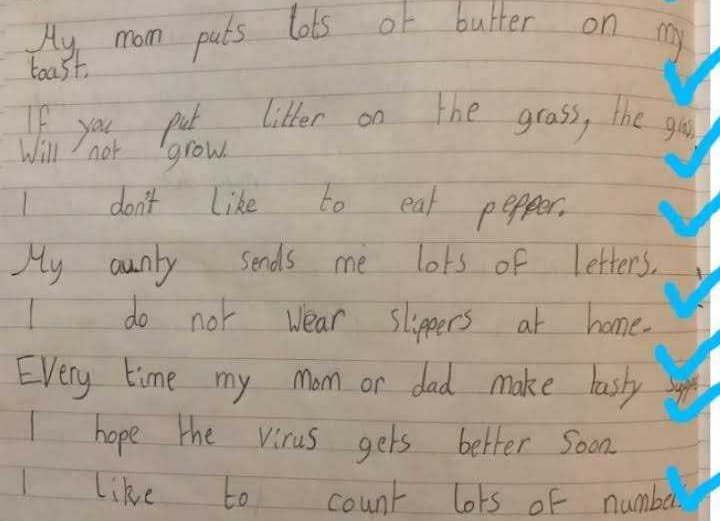 My mom puts lots of butter on my
toast.
If you put litter on the grass, the grass
Will not grow.
I don't like to eat pepper.
My aunty sends me lots of letters.
I do not wear slippers at home.
EVery time my mom or dad make tasty
I hope the virus gets better Soon
I like to count lots of number